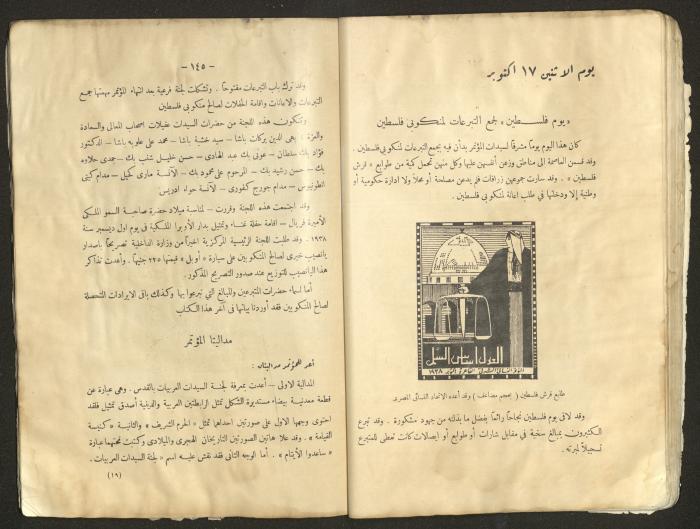 يوم الاثنين ١٧ اكتوبر
« يوم فلسطين » لجمع التبرعات لمنكوبي فلسطين
كان هذا اليوم يوماً مشرقاً لسيدات المؤتمر بدأن فيه بجمع التبرعات لمنكوبي فلسطين .
وقد قسمن العاصمة الى مناطق وزعن أنفسهن عليها وكل منهن تحمل كمية من طوابع « قرش
فلسطين » . وقد سارت جموعهن زرافات فلم يدعن مصلحة أو محلاً ولا ادارة حكومية أو
وطنية إلا ودخلنها في طلب اعانة لمنكوبي فلسطين .
العدل اساس السلم
١٩٣٨
طابع قرش فلسطين ( بحجم مضاعف ) وقد أعده الاتحاد النسائي المصري
وقد لاقى يوم فلسطين نجاحاً رائعاً بفضل ما بذلنه من جهود مشكورة . وقد تبرع
الكثيرون بمبالغ سخية في مقابل شارات أو طوابع أو ايصالات كانت تعطى للمتبرع
تسجيلاً لمبرته .
— ١٤٥ —
وقد ترك باب التبرعات مفتوحاً . وتشكلت لجنة فرعية بعد انتهاء المؤتمر مهمتها جمع
التبرعات والاعانات واقامة الحفلات لصالح منكوبي فلسطين
وتتكون هذه اللجنة من حضرات السيدات عقيلات اصحاب المعالي والسعادة
والعزة : بهي الدين بركات باشا – سيد خشبة باشا – محمد علي علوبه باشا – الدكتور
فؤاد بك سلطان – عوني بك عبد الهادي – حسن خليل شنب بك – جدى حلاوه
بك – حسن رشيد بك – المرحوم علي محمود بك – الآنسة ماري كحيل – مدام كيتي
انطونيوس – مدام جورج كفوري – الآنسة حواء ادريس
وقد اجتمعت هذه اللجنة وقررت – لمناسبة ميلاد حضرة صاحبة السمو الملكي
الأميرة فريال – اقامة حفلة غناء وتمثيل بدار الأوبرا الملكية في يوم اول ديسمبر سنة
١٩٣٨ . وقد طلبت اللجنة الرئيسية المركزية اخيراً من وزارة الداخلية تصريحاً باصدار
يانصيب خيري لصالح المنكوبين على سيارة « أوبل » قيمتها ٢٢٥ جنيهاً . وأعدت تذاكر
هذا اليانصيب للتوزيع عند صدور التصريح المذكور .
أما اسماء حضرات المتبرعين والمبالغ التي تبرعوا بها وكذلك باقي الايرادات المتحصلة
لصالح المنكوبين فقد أوردنا بيانها في آخر هذا الكتاب
مداليتا المؤتمر
أعد للمؤتمر مداليتان :
المدالية الاولى – أعدت بمعرفة لجنة السيدات العربيات بالقدس . وهي عبارة عن
قطعة معدنية بيضاء مستديرة الشكل تمثل الرابطتين العربية والدينية أصدق تمثيل فقد
احتوى وجهها الاول على صورتين احداهما تمثل « الحرم الشريف » والثانية « كنيسة
القيامة » . وقد علا هاتين الصورتين التاريخان الهجري والميلادي وكتبت تحتهما عبارة
« ساعدوا الأيتام » . أما الوجه الثاني فقد نقش عليه اسم « لجنة السيدات العربيات .
(١٩)